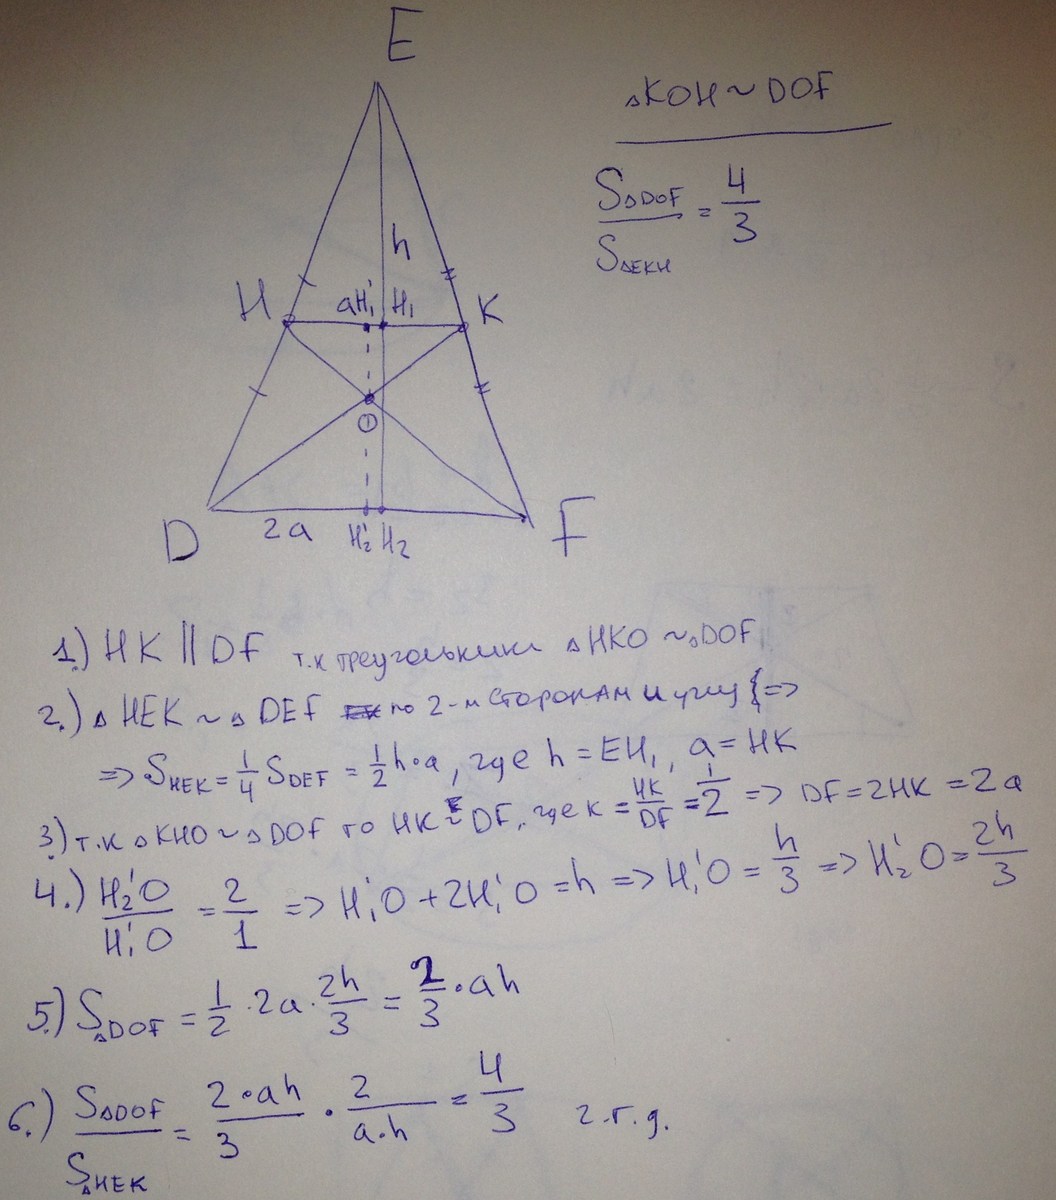 E
△KOH ~ DOF
S△DOF / S△EKH = 4/3
h
H aH₁' H₁ K
O
D 2a H₂' H₂ F
1.) HK || DF т.к треугольники △HKO ~ △DOF
2.) △HEK ~ △DEF по 2-м сторонам и углу} =>
=> S HEK = 1/4 S DEF = 1/2 h·a, где h = EH₁, a = HK
3.) т.к △KHO ~ △DOF то HK ~ DF, где к = HK/DF = 1/2 => DF = 2HK = 2a
4.) H₂'O / H₁'O = 2/1 => H₁'O + 2H₁'O = h => H₁'O = h/3 => H₂'O = 2h/3
5.) S△DOF = 1/2 · 2a · 2h/3 = 2/3 · ah
6.) S△DOF / S△HEK = 2·ah/3 · 2/a·h = 4/3 г.г.д.